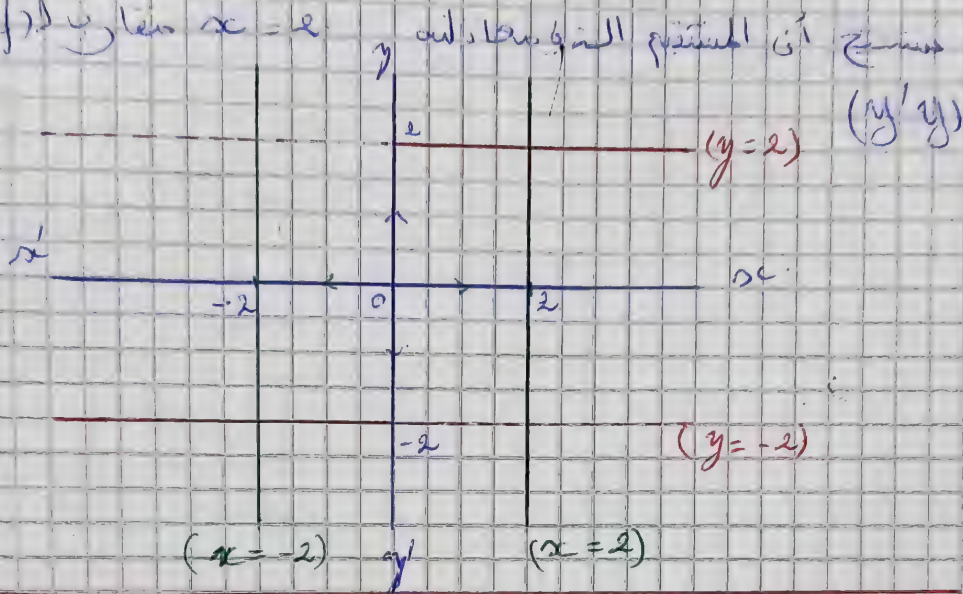 نستنتج أن المستقيم الذي معادلته x = 2 مقارب لـ (f)
(y'y)
y
2
(y = 2)
x'
-2
0
2
x
-2
(y = -2)
(x = -2)
y'
(x = 2)